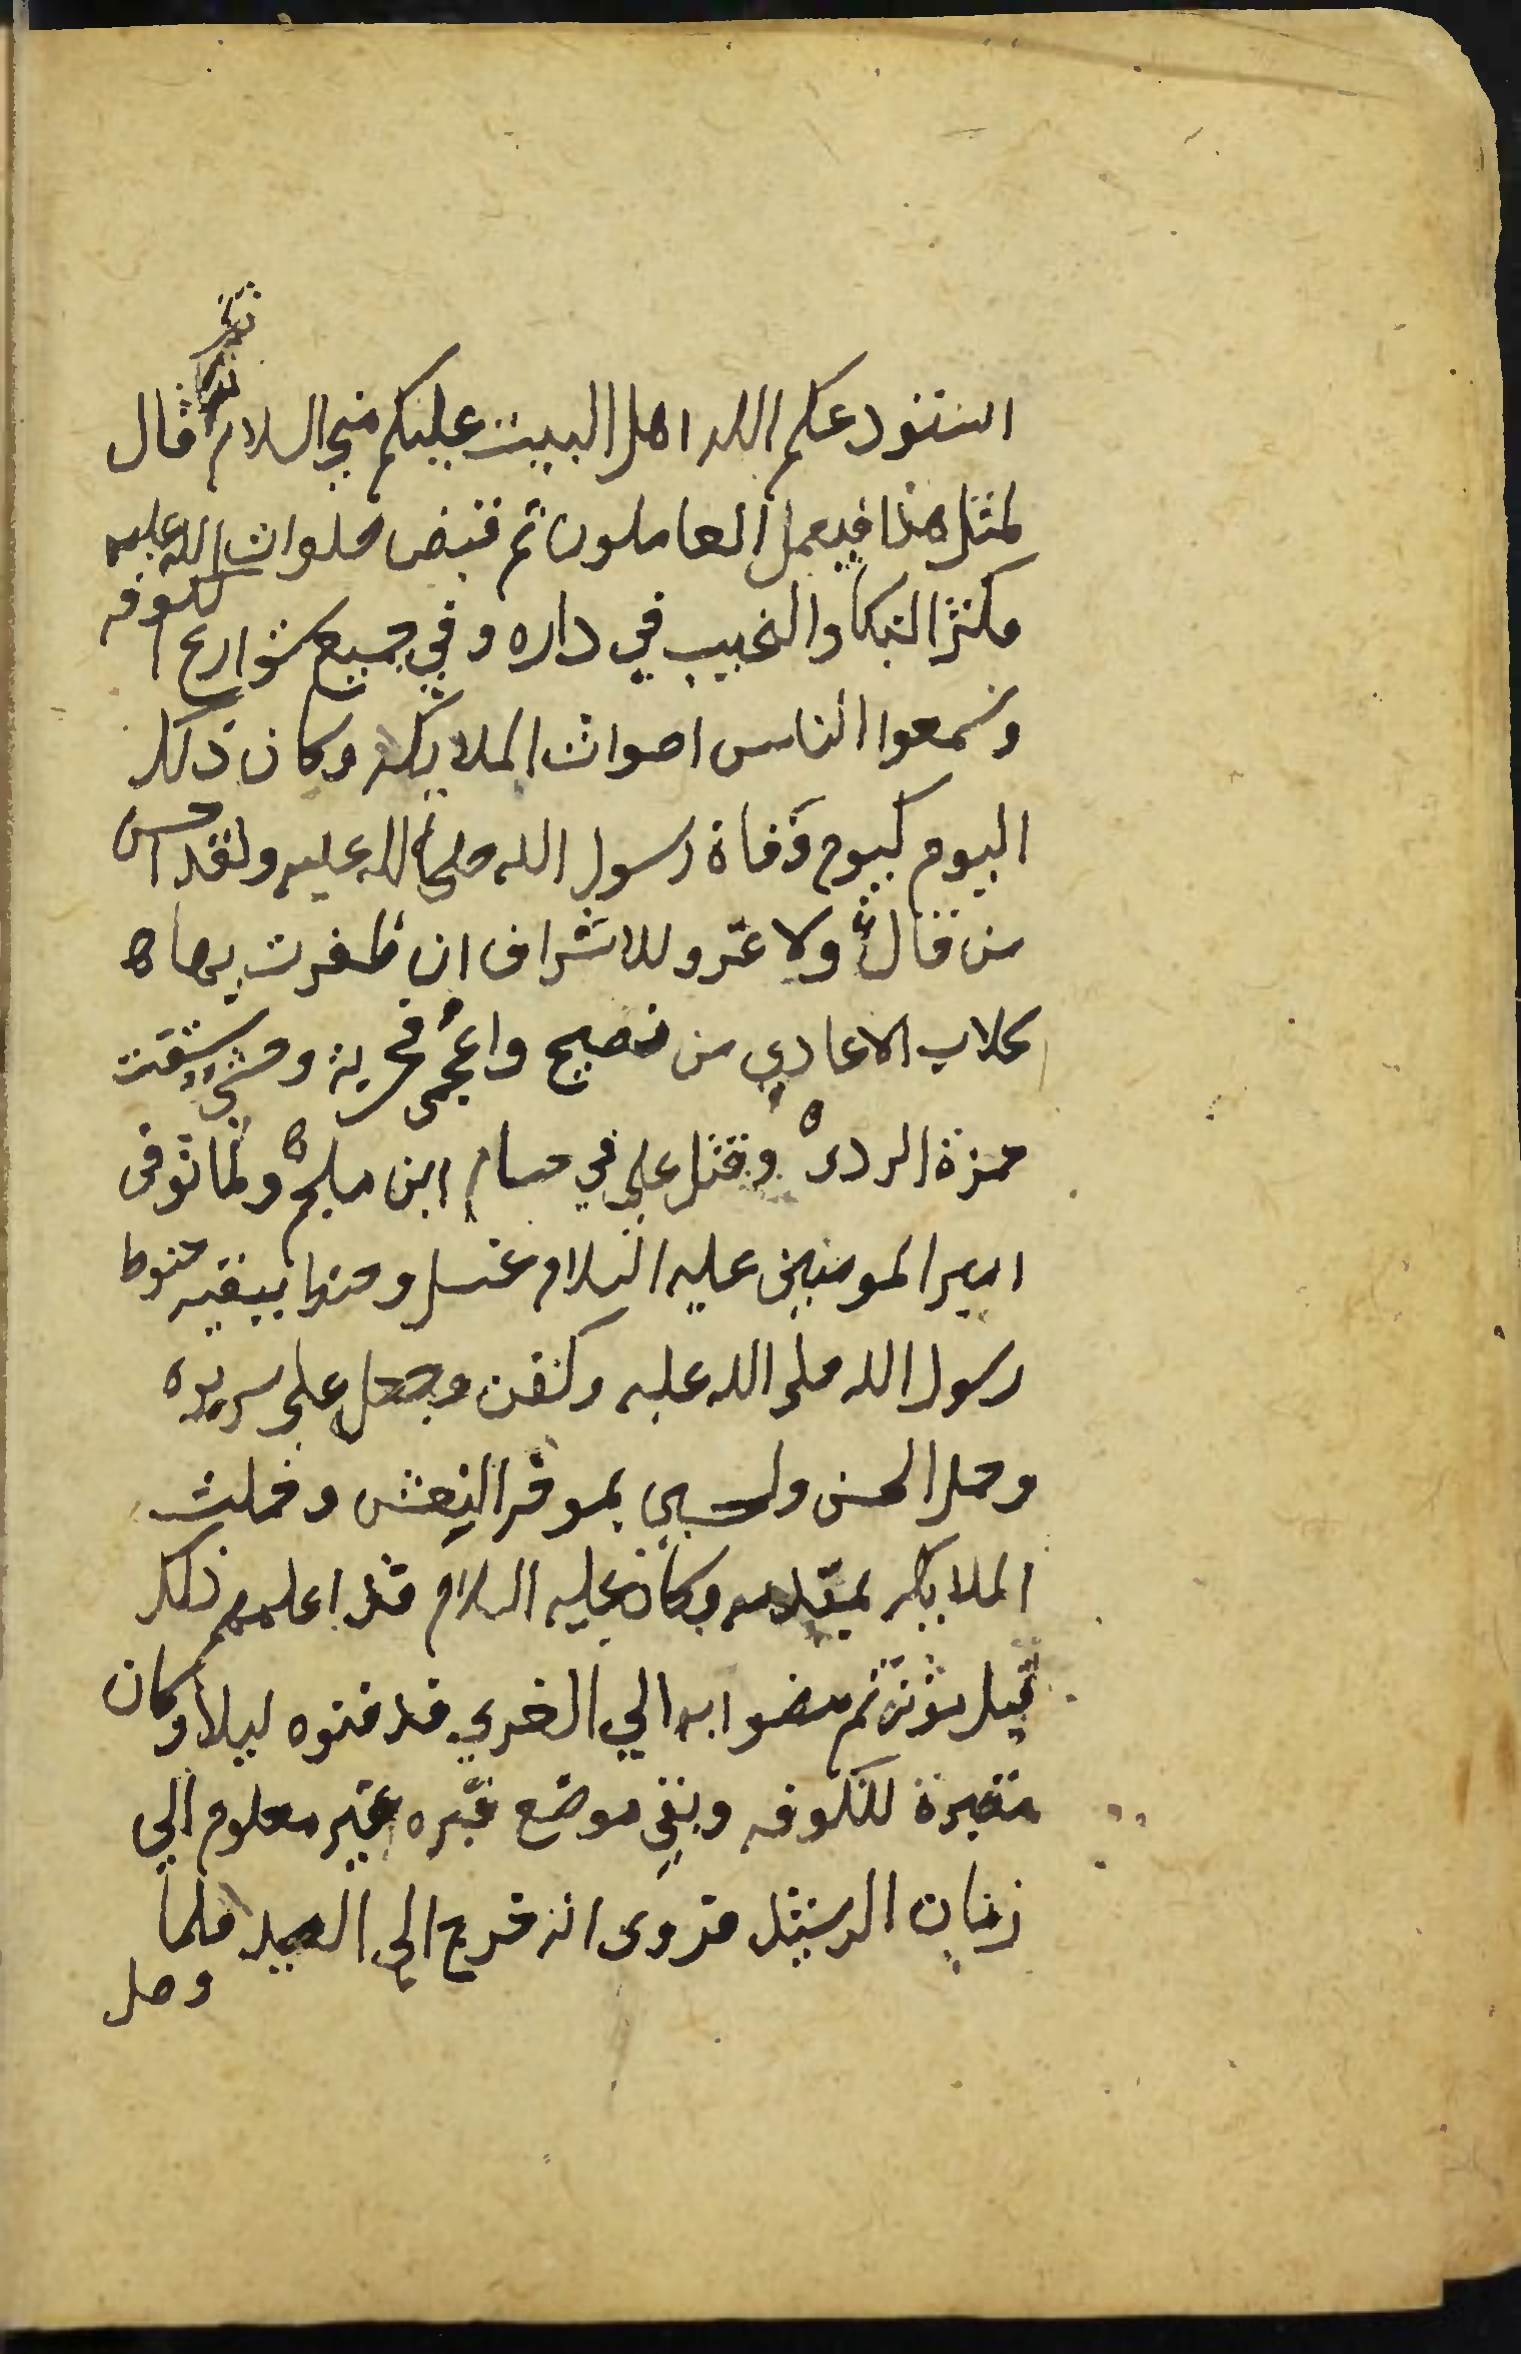 استودعكم الله اهل البيت عليكم مني السلام ثم قال
لمثل هذا فيعمل العاملون ثم قبض صلوات الله عليه
فكثر البكا والنحيب في داره وفي جميع شوارع الكوفه
وسمعوا الناس اصوات الملايكه وكان ذلك
اليوم كيوم وفاة رسول الله صلى الله عليه ولقد احسن
من قال ولا غرو للاشراف ان ظفرت بها ه
كلاب الاعادي من فصيح واعجم فحربة وحشي سقت
حمزة الردى ه وقتل علي في حسام ابن ملجم ه ولما توفى
امير المومنين عليه السلام غسل وحنط ببقيه حنوط
رسول الله صلى الله عليه وكفن وجعل على سريره
وحمل الحسن ولحسين بموخر النعش وحملت
الملايكه بمقدمه وكان عليه السلام قد اعلمهم ذلك
قبل موته ثم مضوا به الي الغري فدفنوه ليلا وكان
مقبرة للكوفه وبقي موضع قبره غير معلوم الى
زمان الرشيد فروى انه خرج الى الصيد فلما
وصل